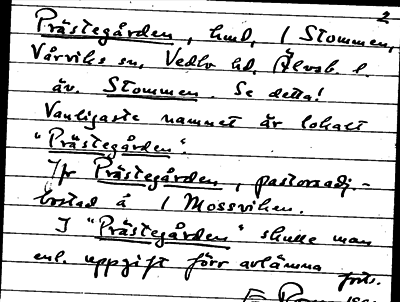 2
Prästegården, hmd, 1 Stommen,
Vårviks sn, Vedbo hd, Älvsb. l.
äv. Stommen. Se detta!
Vanligaste namnet är lokalt
"Prästegården".
Jfr Prästegården, pastorsadj.-
bostad å 1 Mossviken.
I "Prästegården" skulle man
enl. uppgift förr avlämna
forts.